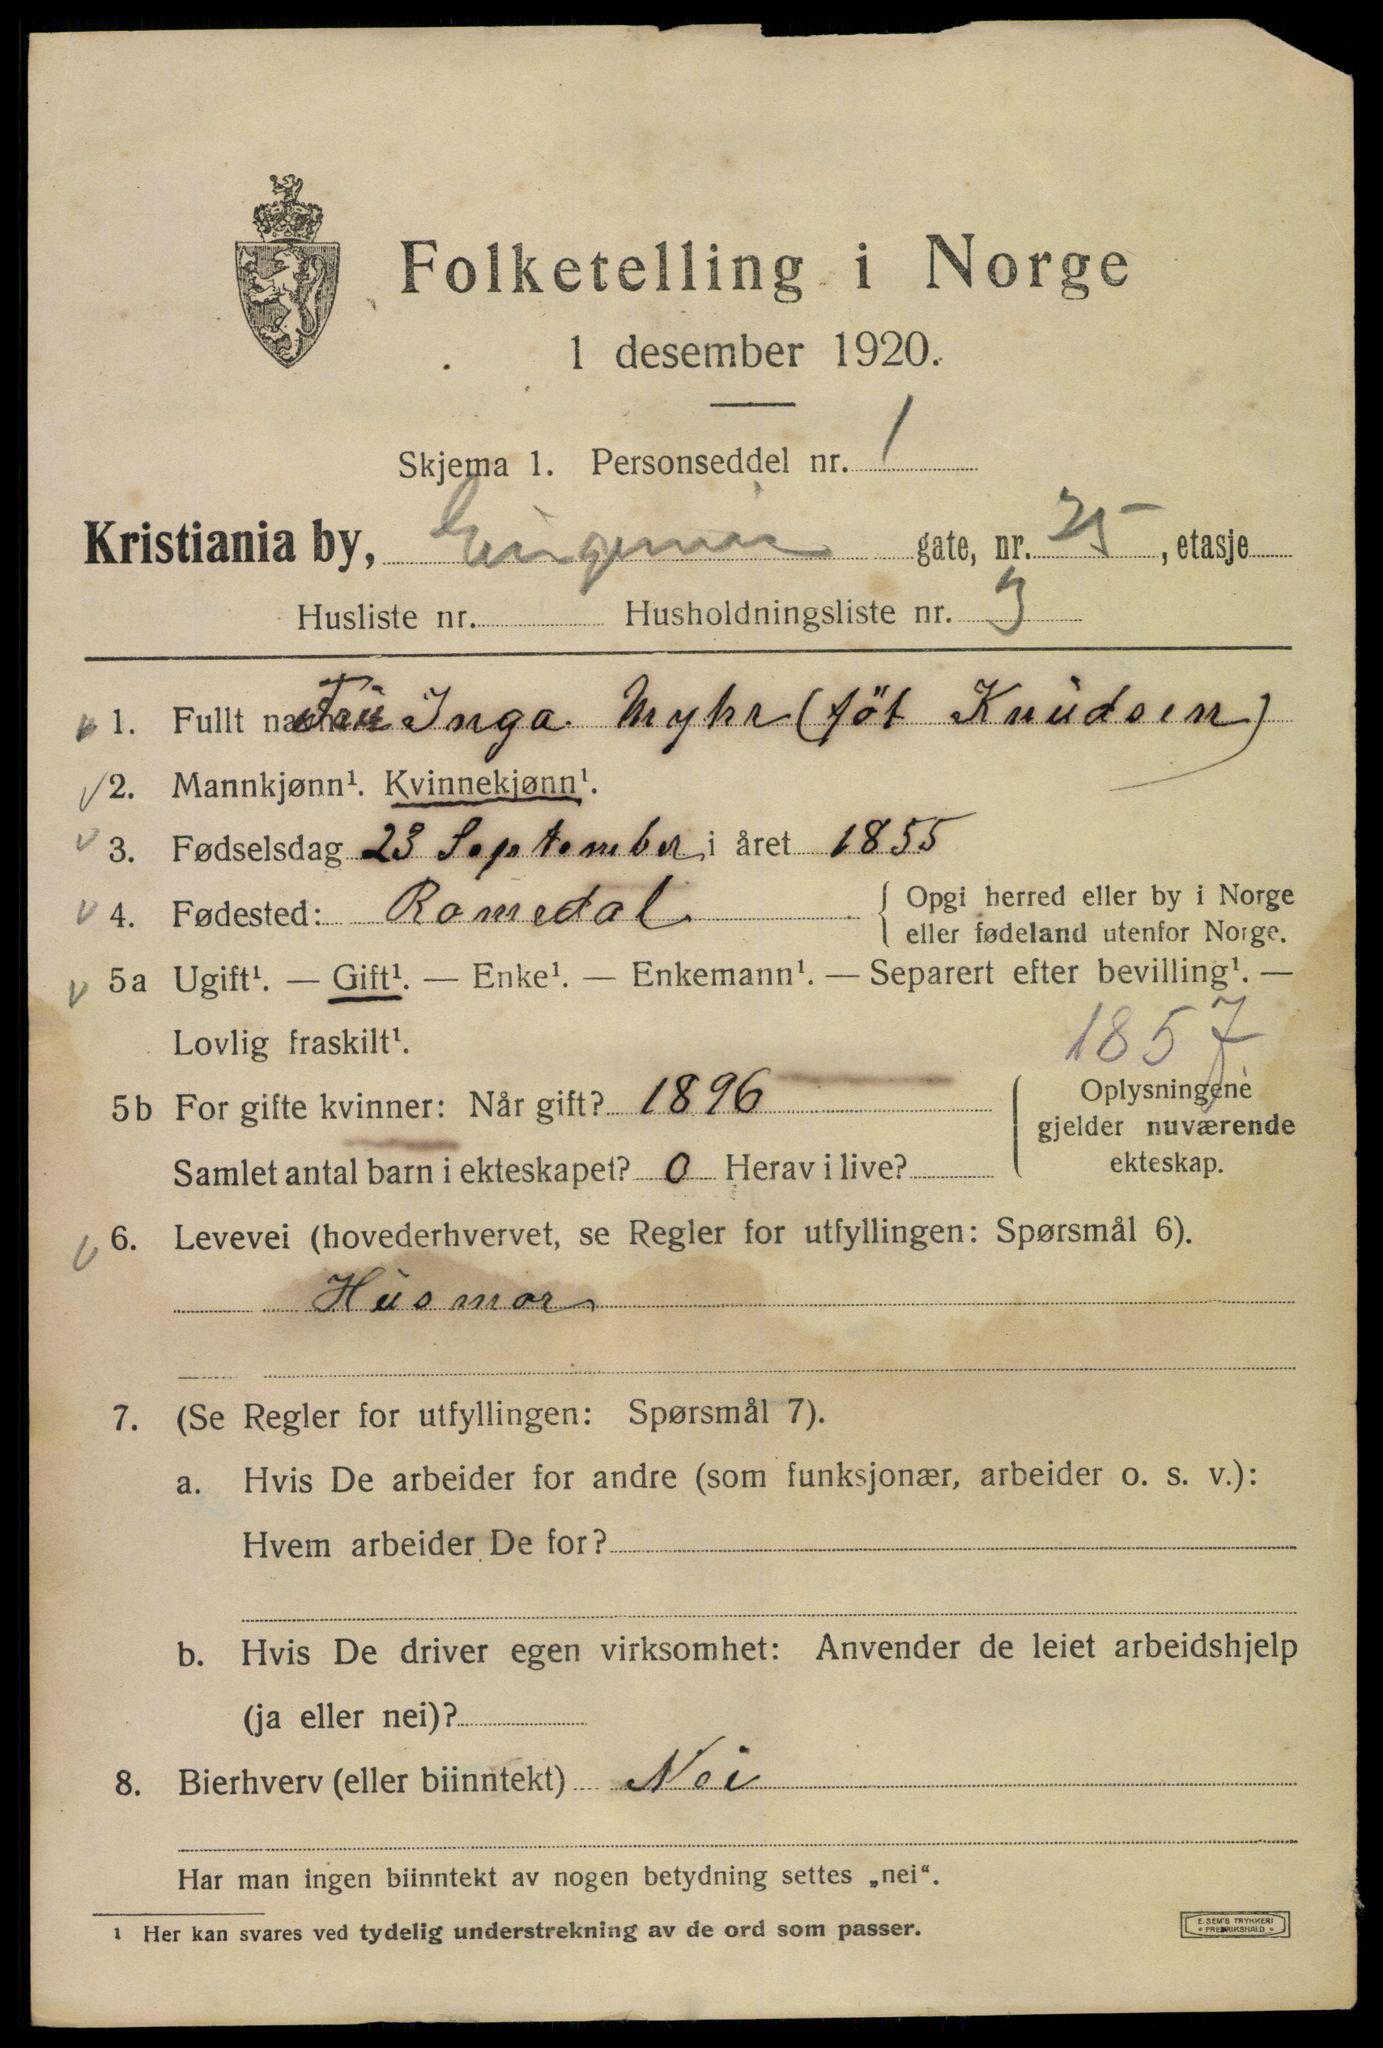 Folketelling i Norge
1 desember 1920.
Skjema 1. Personseddel nr. 1
Kristiania by, gate, nr. 25, etasje
Husliste nr. Husholdningsliste nr. 3
1. Fullt navn: Fru Inga Myhr (föt Knudsen)
2. Mannkjønn¹. Kvinnekjønn¹.
3. Fødselsdag 23 September i året 1855
4. Fødested: Romedal { Opgi herred eller by i Norge
eller fødeland utenfor Norge.
5a Ugift¹. — Gift¹. — Enke¹. — Enkemann¹. — Separert efter bevilling¹. —
Lovlig fraskilt¹. 1857
5b For gifte kvinner: Når gift? 1896 { Oplysningene
gjelder nuværende
Samlet antal barn i ekteskapet? 0 Herav i live? ekteskap.
6. Levevei (hovederhvervet, se Regler for utfyllingen: Spørsmål 6).
Husmor
7. (Se Regler for utfyllingen: Spørsmål 7).
a. Hvis De arbeider for andre (som funksjonær, arbeider o. s. v.):
Hvem arbeider De for?
b. Hvis De driver egen virksomhet: Anvender de leiet arbeidshjelp
(ja eller nei)?
8. Bierhverv (eller biinntekt) Nei
Har man ingen biinntekt av nogen betydning settes „nei“.
¹ Her kan svares ved tydelig understrekning av de ord som passer.
E. SEM'S TRYKKERI
FREDRIKSHALD